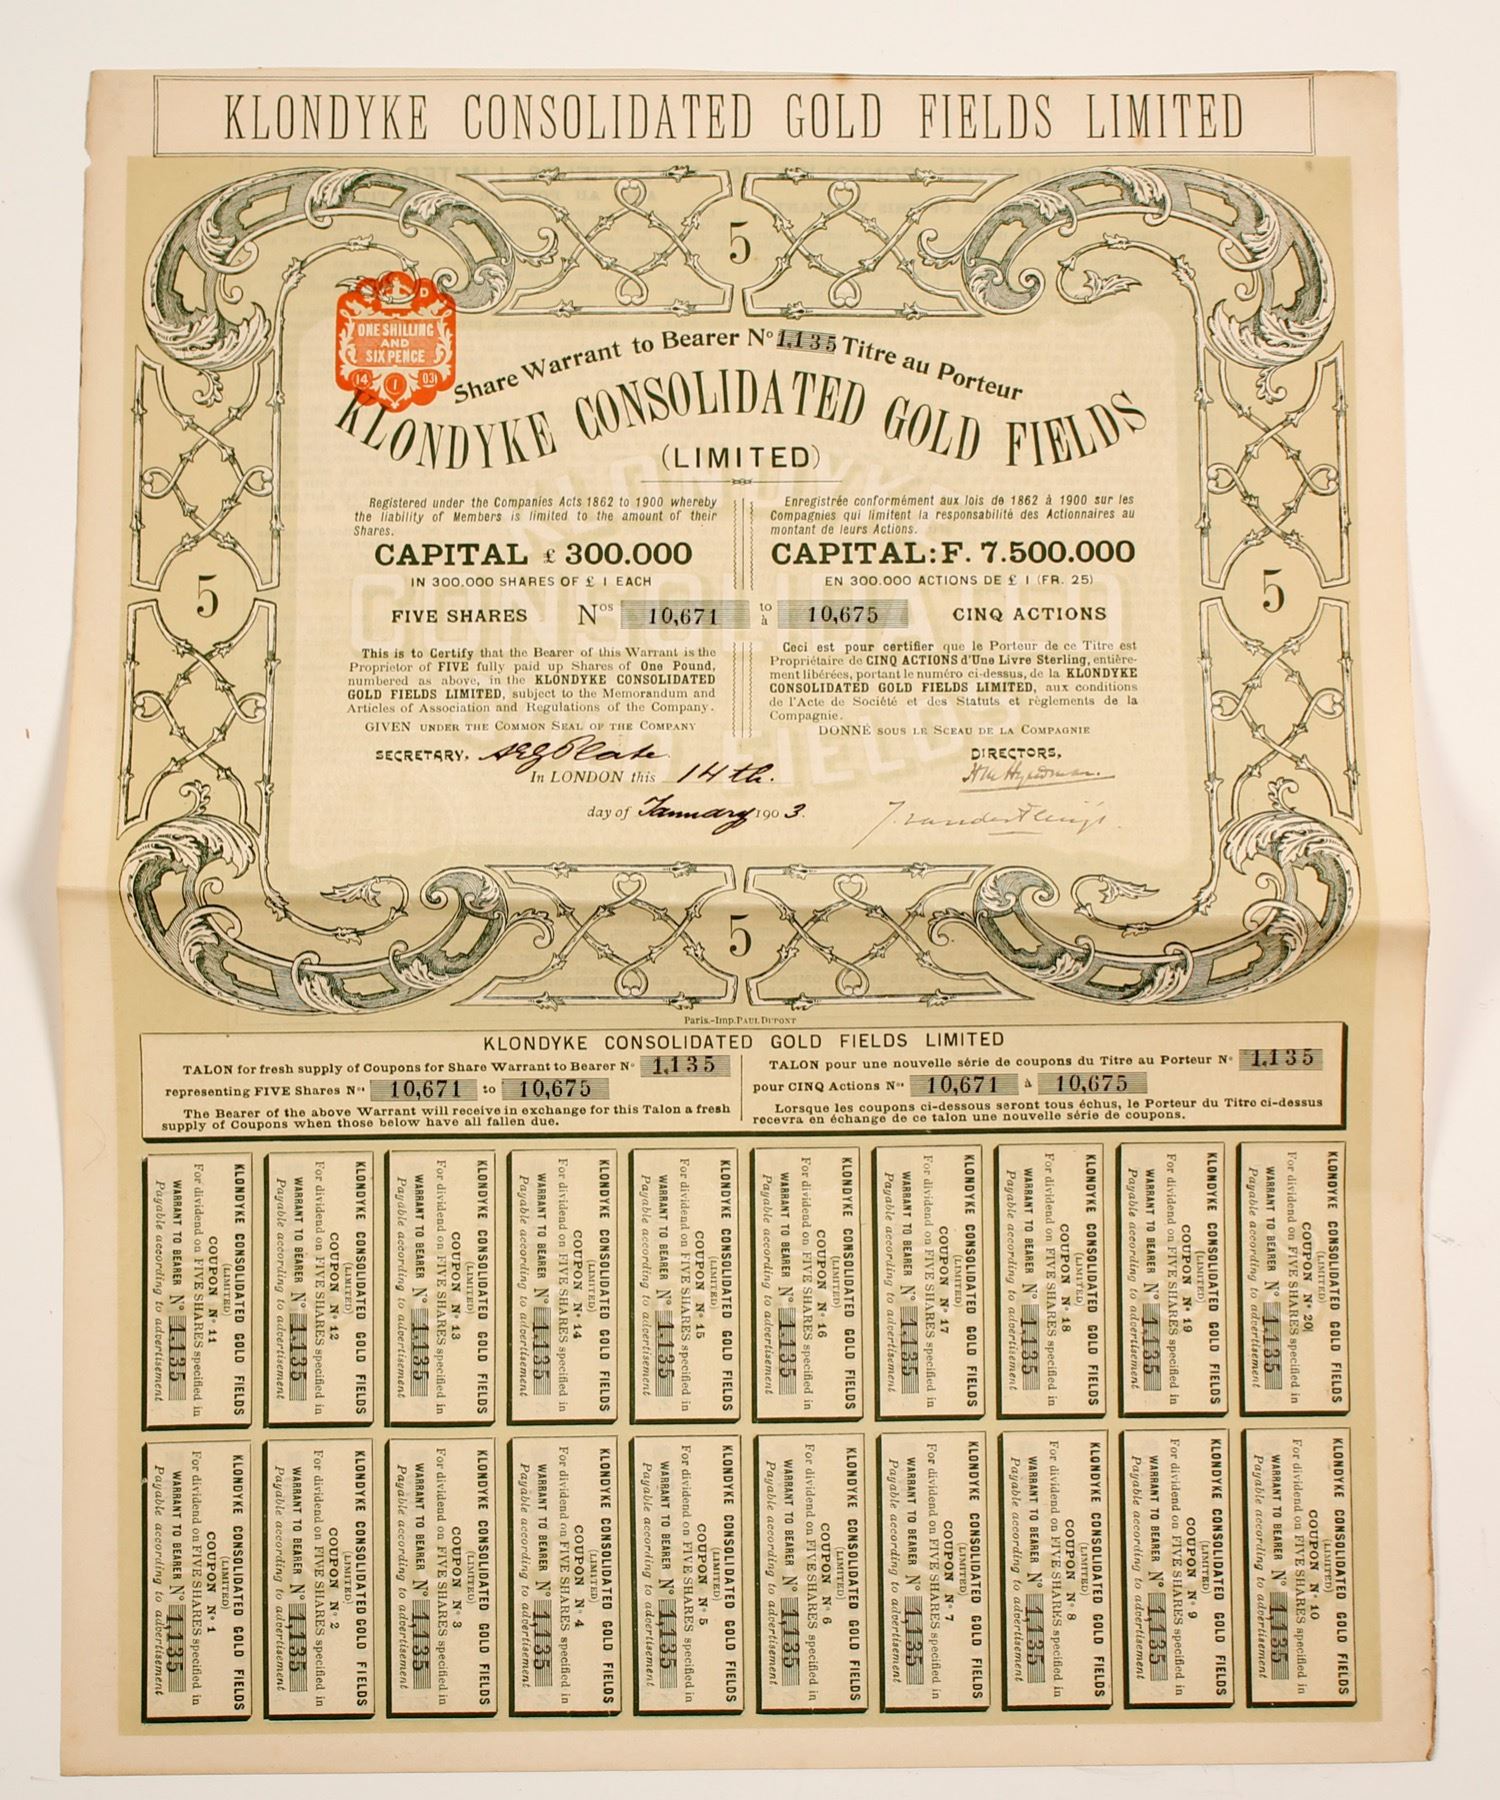 KLONDYKE CONSOLIDATED GOLD FIELDS LIMITED
5
ONE SHILLING
AND
SIX PENCE
14 1 03
Share Warrant to Bearer No 1,135 Titre au Porteur
KLONDYKE CONSOLIDATED GOLD FIELDS
(LIMITED)
Registered under the Companies Acts 1862 to 1900 whereby
the liability of Members is limited to the amount of their
Shares.
CAPITAL £ 300.000
IN 300.000 SHARES OF £ 1 EACH
Enregistrée conformément aux lois de 1862 à 1900 sur les
Compagnies qui limitent la responsabilité des Actionnaires au
montant de leurs Actions.
CAPITAL: F. 7.500.000
EN 300.000 ACTIONS DE £ 1 (FR. 25)
5
5
FIVE SHARES Nos 10,671 to à 10,675 CINQ ACTIONS
This is to Certify that the Bearer of this Warrant is the
Proprietor of FIVE fully paid up Shares of One Pound,
numbered as above, in the KLONDYKE CONSOLIDATED
GOLD FIELDS LIMITED, subject to the Memorandum and
Articles of Association and Regulations of the Company.
GIVEN UNDER THE COMMON SEAL OF THE COMPANY
Ceci est pour certifier que le Porteur de ce Titre est
Propriétaire de CINQ ACTIONS d'Une Livre Sterling, entière-
ment libérées, portant le numéro ci-dessus, de la KLONDYKE
CONSOLIDATED GOLD FIELDS LIMITED, aux conditions
de l'Acte de Société et des Statuts et règlements de la
Compagnie.
DONNÉ SOUS LE SCEAU DE LA COMPAGNIE
SECRETARY,
DIRECTORS,
In LONDON this 14th.
day of January 1903.
5
Paris.-Imp. PAUL DUPONT
KLONDYKE CONSOLIDATED GOLD FIELDS LIMITED
TALON for fresh supply of Coupons for Share Warrant to Bearer No 1,135
representing FIVE Shares Nos 10,671 to 10,675
The Bearer of the above Warrant will receive in exchange for this Talon a fresh
supply of Coupons when those below have all fallen due.
TALON pour une nouvelle série de coupons du Titre au Porteur No 1,135
pour CINQ Actions Nos 10,671 à 10,675
Lorsque les coupons ci-dessous seront tous échus, le Porteur du Titre ci-dessus
recevra en échange de ce talon une nouvelle série de coupons.
KLONDYKE CONSOLIDATED GOLD FIELDS
(LIMITED)
COUPON No 11
For dividend on FIVE SHARES specified in
WARRANT TO BEARER No 1,135
Payable according to advertisement
KLONDYKE CONSOLIDATED GOLD FIELDS
(LIMITED)
COUPON No 12
For dividend on FIVE SHARES specified in
WARRANT TO BEARER No 1,135
Payable according to advertisement
KLONDYKE CONSOLIDATED GOLD FIELDS
(LIMITED)
COUPON No 13
For dividend on FIVE SHARES specified in
WARRANT TO BEARER No 1,135
Payable according to advertisement
KLONDYKE CONSOLIDATED GOLD FIELDS
(LIMITED)
COUPON No 14
For dividend on FIVE SHARES specified in
WARRANT TO BEARER No 1,135
Payable according to advertisement
KLONDYKE CONSOLIDATED GOLD FIELDS
(LIMITED)
COUPON No 15
For dividend on FIVE SHARES specified in
WARRANT TO BEARER No 1,135
Payable according to advertisement
KLONDYKE CONSOLIDATED GOLD FIELDS
(LIMITED)
COUPON No 16
For dividend on FIVE SHARES specified in
WARRANT TO BEARER No 1,135
Payable according to advertisement
KLONDYKE CONSOLIDATED GOLD FIELDS
(LIMITED)
COUPON No 17
For dividend on FIVE SHARES specified in
WARRANT TO BEARER No 1,135
Payable according to advertisement
KLONDYKE CONSOLIDATED GOLD FIELDS
(LIMITED)
COUPON No 18
For dividend on FIVE SHARES specified in
WARRANT TO BEARER No 1,135
Payable according to advertisement
KLONDYKE CONSOLIDATED GOLD FIELDS
(LIMITED)
COUPON No 19
For dividend on FIVE SHARES specified in
WARRANT TO BEARER No 1,135
Payable according to advertisement
KLONDYKE CONSOLIDATED GOLD FIELDS
(LIMITED)
COUPON No 20
For dividend on FIVE SHARES specified in
WARRANT TO BEARER No 1,135
Payable according to advertisement
KLONDYKE CONSOLIDATED GOLD FIELDS
(LIMITED)
COUPON No 1
For dividend on FIVE SHARES specified in
WARRANT TO BEARER No 1,135
Payable according to advertisement
KLONDYKE CONSOLIDATED GOLD FIELDS
(LIMITED)
COUPON No 2
For dividend on FIVE SHARES specified in
WARRANT TO BEARER No 1,135
Payable according to advertisement
KLONDYKE CONSOLIDATED GOLD FIELDS
(LIMITED)
COUPON No 3
For dividend on FIVE SHARES specified in
WARRANT TO BEARER No 1,135
Payable according to advertisement
KLONDYKE CONSOLIDATED GOLD FIELDS
(LIMITED)
COUPON No 4
For dividend on FIVE SHARES specified in
WARRANT TO BEARER No 1,135
Payable according to advertisement
KLONDYKE CONSOLIDATED GOLD FIELDS
(LIMITED)
COUPON No 5
For dividend on FIVE SHARES specified in
WARRANT TO BEARER No 1,135
Payable according to advertisement
KLONDYKE CONSOLIDATED GOLD FIELDS
(LIMITED)
COUPON No 6
For dividend on FIVE SHARES specified in
WARRANT TO BEARER No 1,135
Payable according to advertisement
KLONDYKE CONSOLIDATED GOLD FIELDS
(LIMITED)
COUPON No 7
For dividend on FIVE SHARES specified in
WARRANT TO BEARER No 1,135
Payable according to advertisement
KLONDYKE CONSOLIDATED GOLD FIELDS
(LIMITED)
COUPON No 8
For dividend on FIVE SHARES specified in
WARRANT TO BEARER No 1,135
Payable according to advertisement
KLONDYKE CONSOLIDATED GOLD FIELDS
(LIMITED)
COUPON No 9
For dividend on FIVE SHARES specified in
WARRANT TO BEARER No 1,135
Payable according to advertisement
KLONDYKE CONSOLIDATED GOLD FIELDS
(LIMITED)
COUPON No 10
For dividend on FIVE SHARES specified in
WARRANT TO BEARER No 1,135
Payable according to advertisement